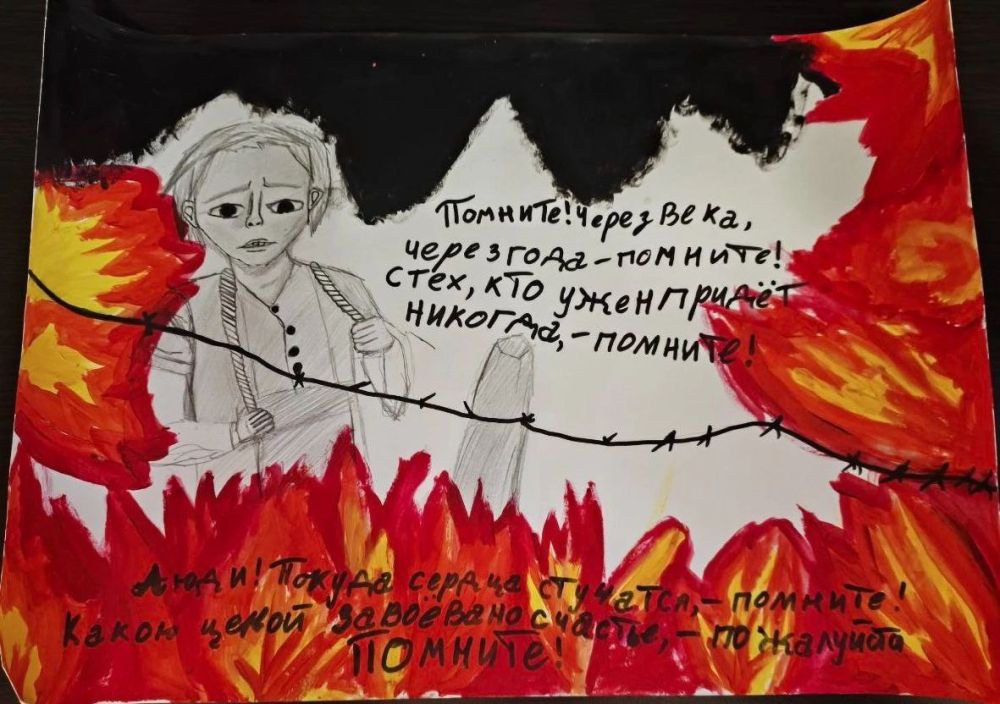 Помните! Через века,
через года – помните!
С тех, кто уже нпридёт
никогда, – помните!
Люди! Покуда сердца стучатся, – помните!
Какою ценой завоёвано счастье, – пожалуйста
Помните!